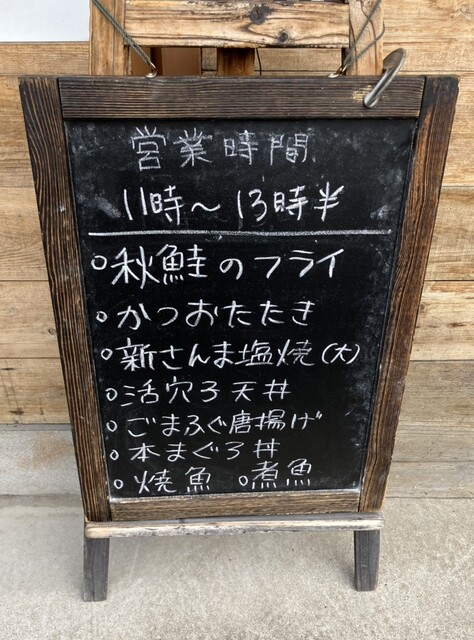 営業時間
11時～13時半
○秋鮭のフライ
○かつおたたき
○新さんま塩焼(大)
○活穴子天丼
○ごまふぐ唐揚げ
○本まぐろ丼
○焼魚 ○煮魚